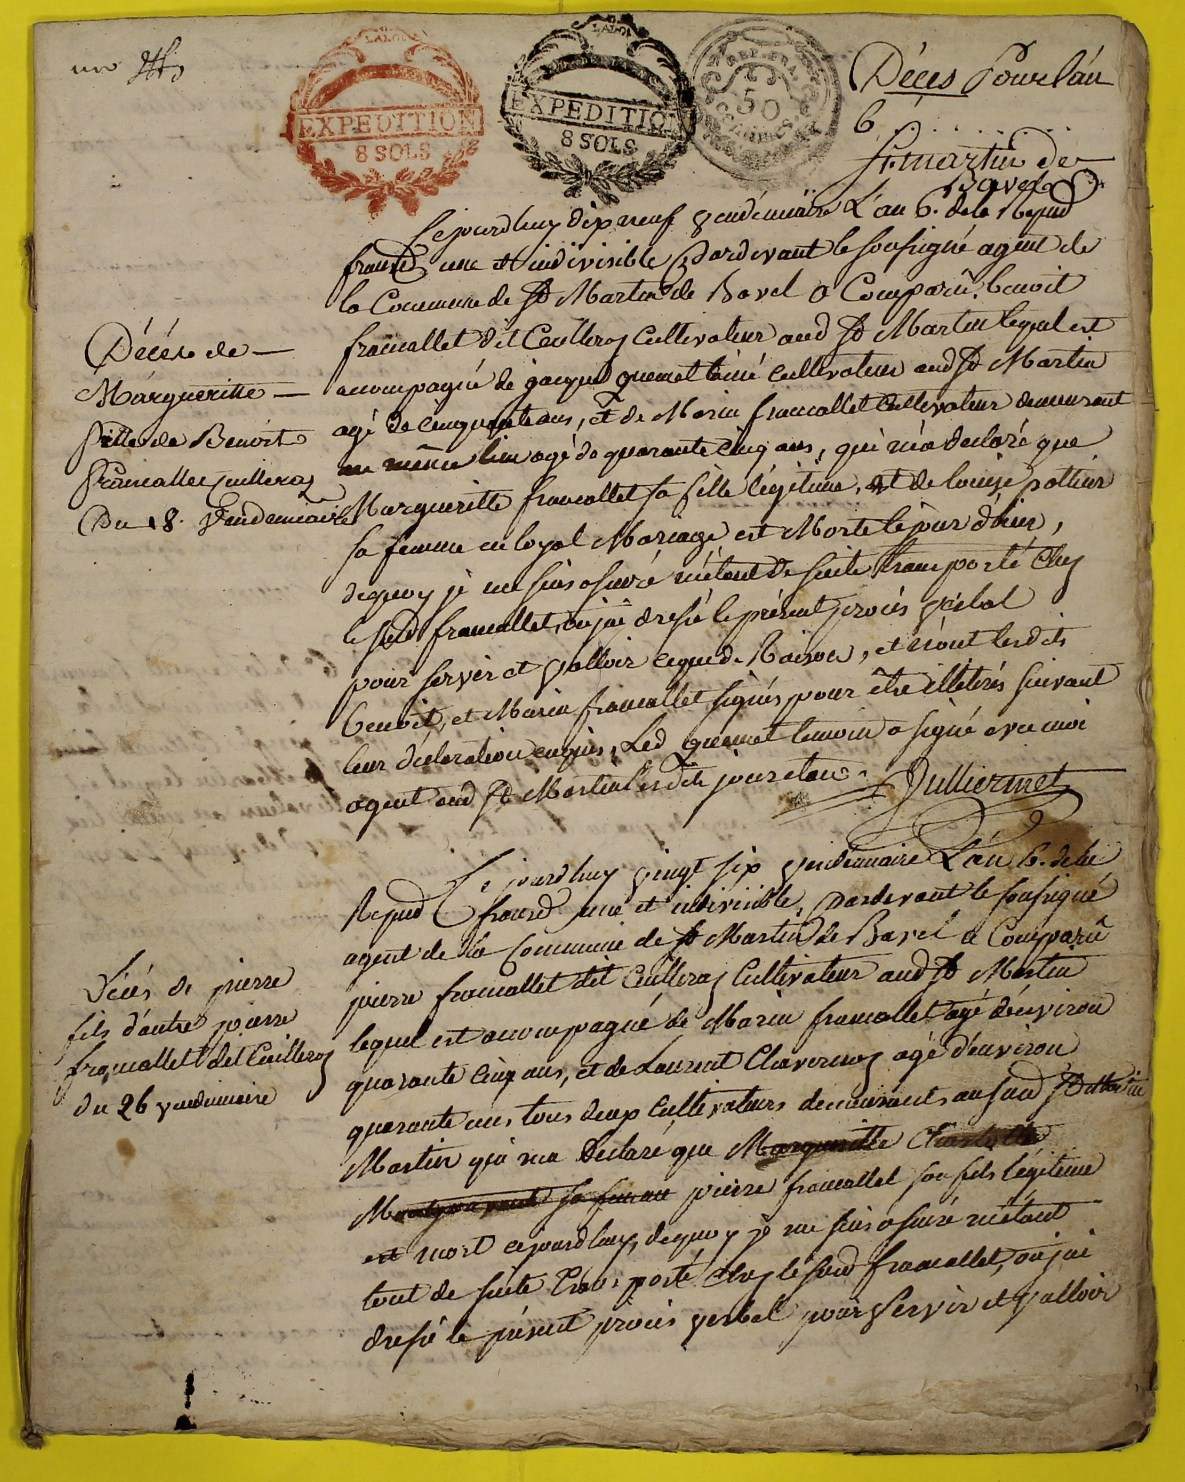 LA LOI
EXPEDITION
8 SOLS
LA LOI
EXPEDITION
8 SOLS
REP. FRA.
50
Déces Pour l'an
6
St. martin de
Bavel
Cejourdhuy dix neuf vendémiaire L'an 6. de la Repud
francd une et indivisible, Pardevant le sousigné agent de
la Commune de St Martin de Bavel a Comparû benoit
francallet dit Cuilleraz Cultivateur aud St Martin lequel est
acompagné de jacque quemet lainé cultivateur aud St Martin
agé de cinquante ans, et de Marin francallet Cultivateur demeurant
au même lieu agé de quarante cinq ans, qui m'a declaré que
Margueritte francallet sa fille légitime, et de louise pottier
sa femme en loyal Mariage est Morte le jour d'hier,
dequoy je me suis assuré métant de suite transporté Chez
le sud francallet, où jai dressé le présent procès verbal
pour servir et valloir ce que de Raison, et n'ont lesdits
benoit, et Marin francallet signés pour être illeterés suivant
leur déclaration enquis, Led quemet temoin a signé avec moi
agent aud St Martin lesdits jour et an
Julliermet
Décése de
Margueritte
fille de Benoit
francallet Cuilleraz
Du 18. Vendemiaire
Cejourdhuy vingt six vendémiaire L'an 6. de la
Repud francd une et indivisible, Pardevant le sousigné
agent de la Commune de St Martin de Bavel a Comparû
pierre francallet dit Cuilleraz Cultivateur aud St Martin
lequel est acompagné de Marin francallet agé d'environ
quarante cinq ans, et de Laurent Chavornoz agé d'environ
quarante ans tous deux Cultivateurs demeurants au sud St Martin
Martin qui m'a déclaré que Margueritte
sa femme pierre francallet son fils légitime
est mort cejourdhuy, dequoy je me suis assuré métant
tout de suite transporté, chez lesud francallet, où jai
dressé le présent procès verbal pour servir et valloir
Décés de pierre
fils d'autre pierre
francallet dit Cuilleraz
du 26 vendimiaire